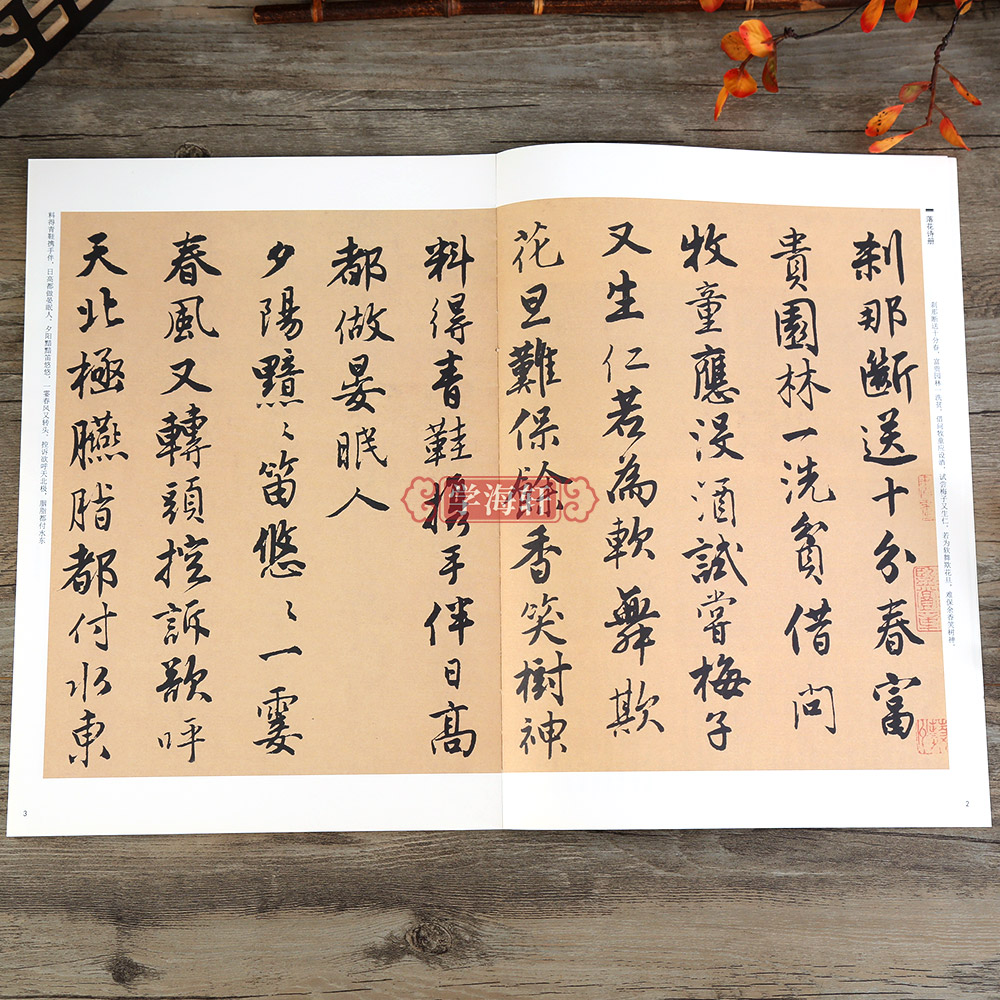 落花诗册
刹那断送十分春，富贵园林一洗贫。借问牧童应没酒，试尝梅子又生仁。若为软舞欺花旦，难保余香笑树神。
刹那斷送十分春富
貴園林一洗貧借問
牧童應没酒試嘗梅子
又生仁若為軟舞欺
花旦難保餘香笑樹神
2
料得青鞋攜手伴日高
都做晏眠人
夕陽黯〻笛悠〻一霎
春風又轉頭控訴欲呼
天北極臙脂都付水東
料得青鞋携手伴，日高都做晏眠人。夕阳黯黯笛悠悠，一霎春风又转头。控诉欲呼天北极，胭脂都付水东
3
学海轩